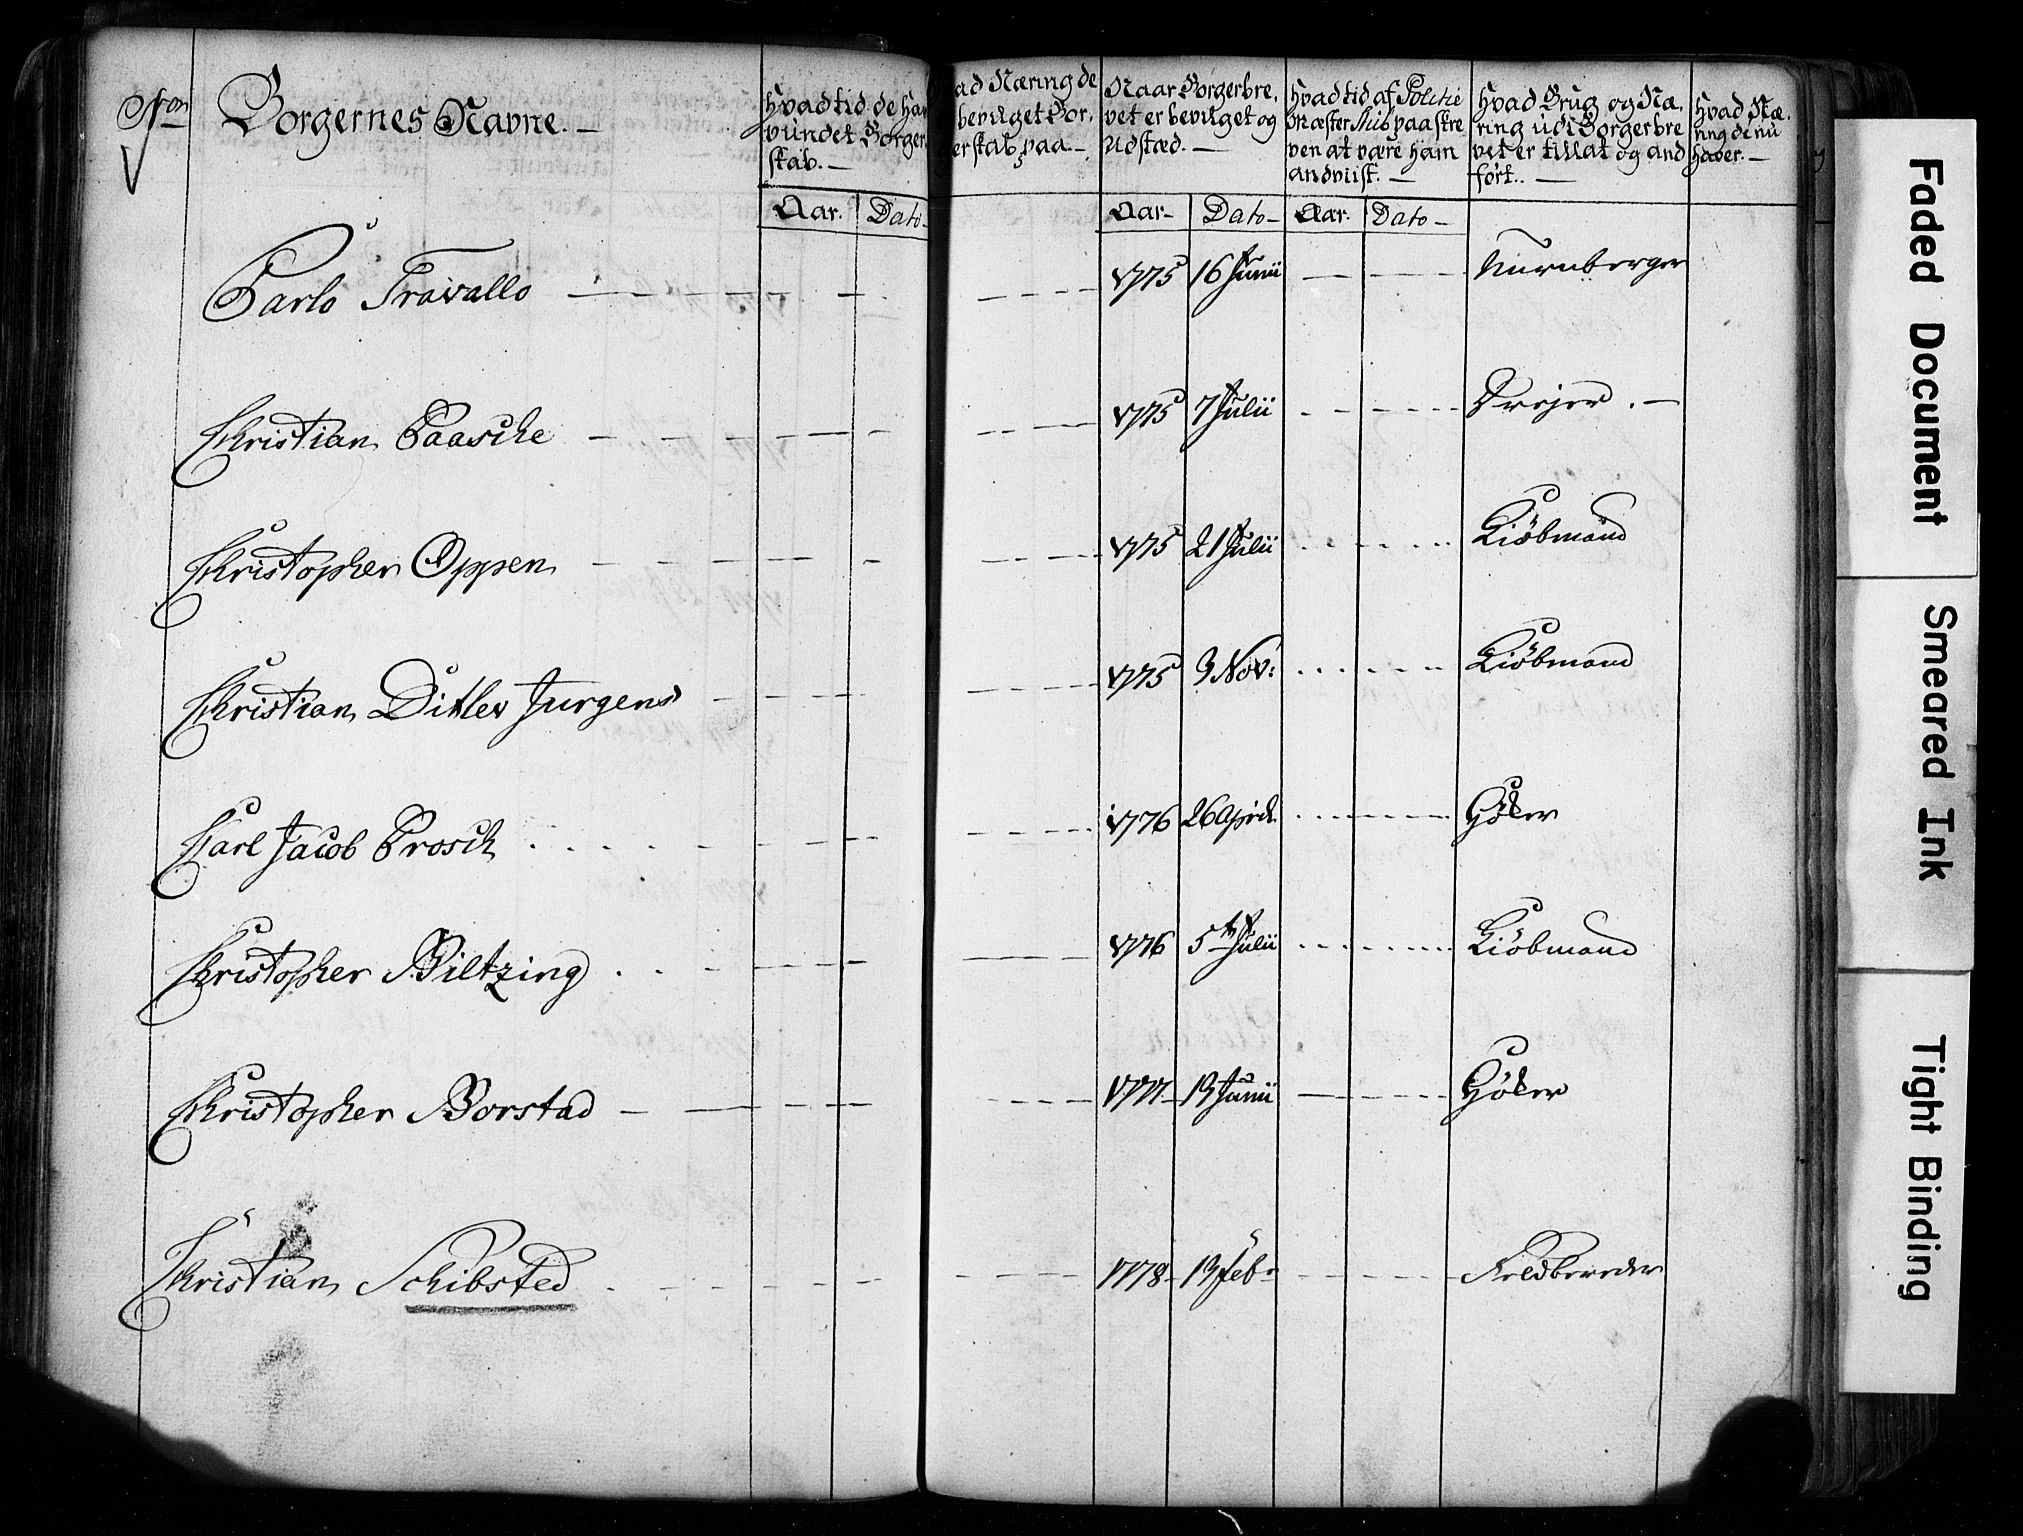 Borgernes Navne. —
Hvad tid de har
vundet Borger
skab. —
Aar. Dato
ad Næring de
bevilget Bor,
gerskab paa. —
Naar Borgerbre,
vet er bevilget og
Udstæd. —
Aar — Dato —
Hvad tid af Politie
Mæster paaskre
ven at være ham
andviist. —
Aar. Dato —
Hvad Brug og Næ,
ring udi Borgerbre
vet er tillat og and
fört. —
Hvad Næ,
ring de nu
haver. —
Carlo Travallo — 1775 16 Junii — Nürnberger
Christian Paasche — 1775 7 Julii — Drejer. —
Christopher Oppen — 1775 21 Julii — Kiöbmand
Christian Ditlev Jurgens — 1775 3 Nov: — Kiöbmand
Carl Jacob Prosch — 1776 26 April. — Höker
Christopher Biltzing — 1776 5 Julii — Kiöbmand
Christopher Borstad — 1777 13 Junii — Höker
Christian Schibsted — 1778 13 Feb. — Feldbereder
Faded Document
Smeared Ink
Tight Binding